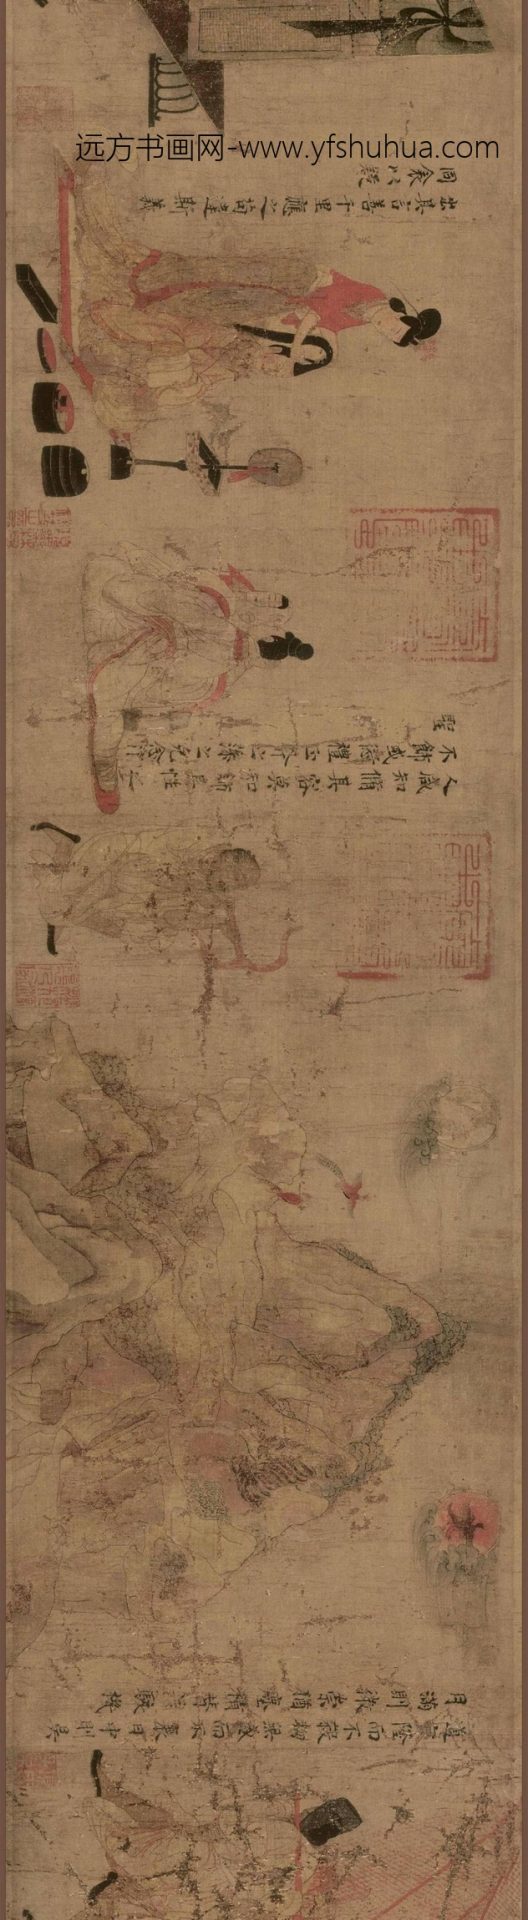 远方书画网-www.yfshuhua.com
道罔隆而不殺物無盛而不衰日中則昊
月滿則微崇猶塵積替若駭機
人咸知脩其容莫知飾其性性之
不飾或愆禮正斧之藻之克念作
聖
出其言善千里應之苟違斯義
同衾以疑